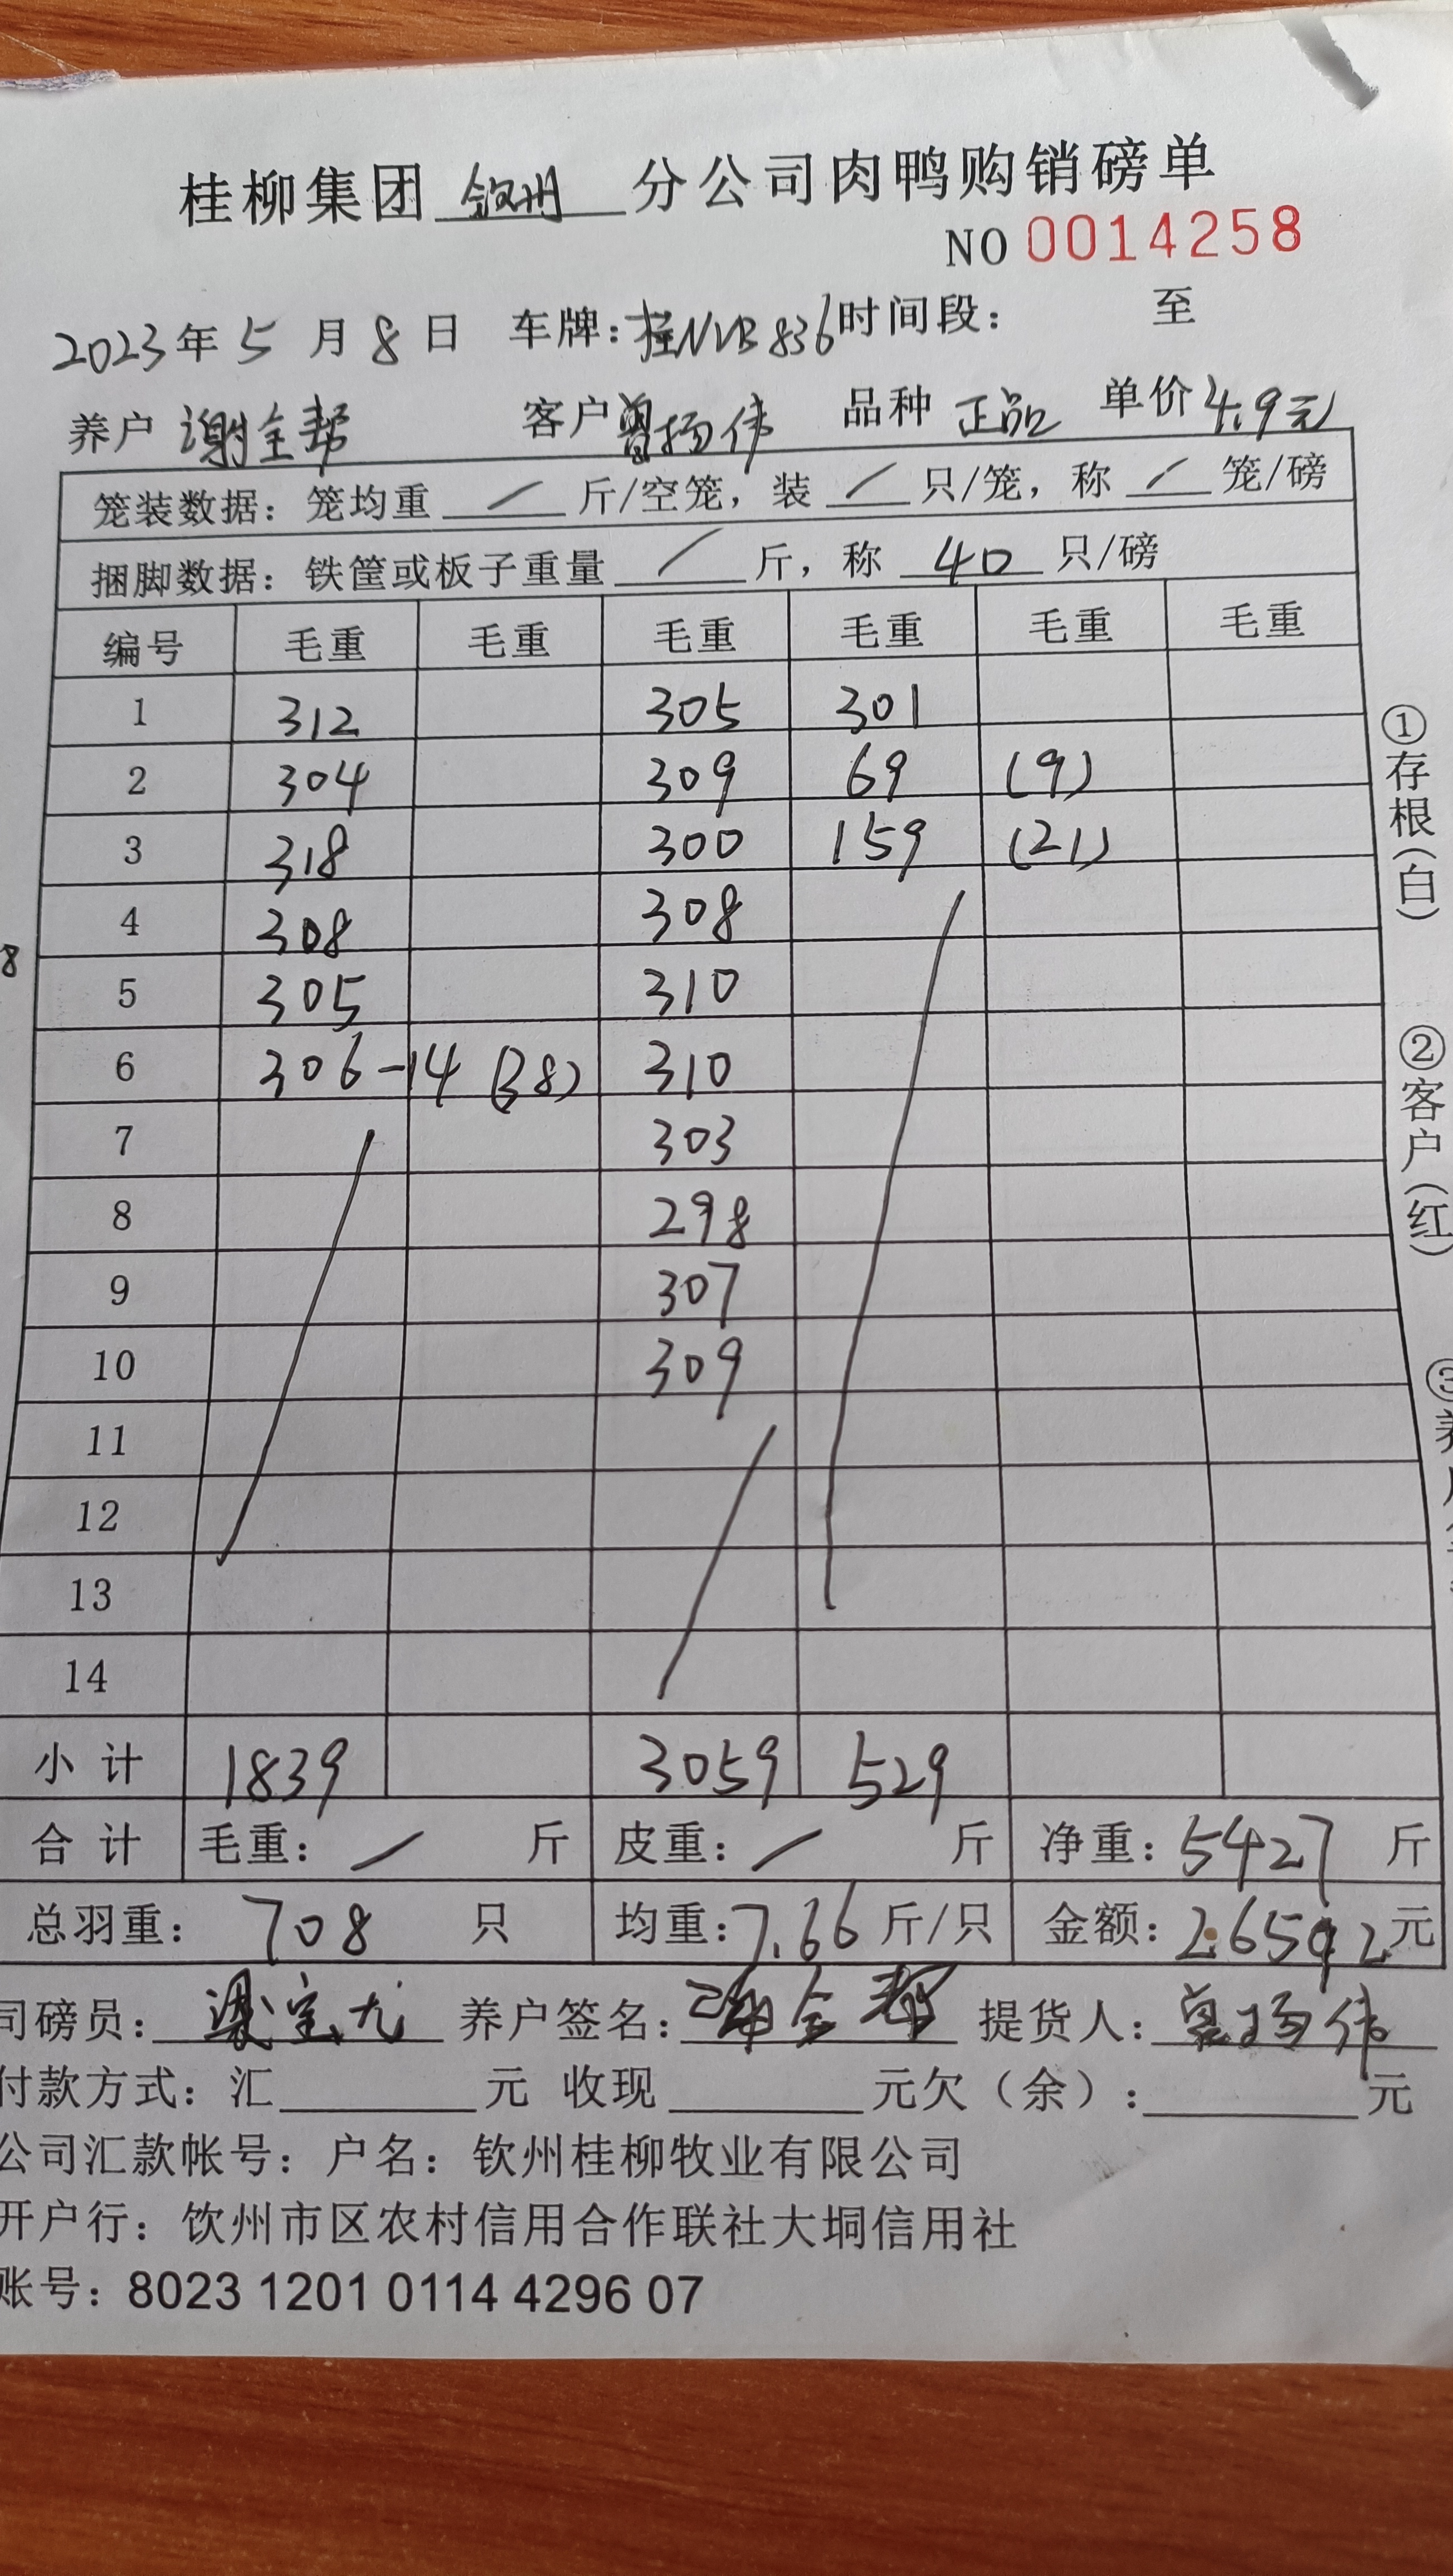 桂柳集团 钦州 分公司肉鸭购销磅单
NO 0014258
2023年 5 月 8 日 车牌:桂NVB836 时间段: 至
养户 谢全帮 客户 曾扬伟 品种 正品 单价 4.9元
笼装数据: 笼均重 / 斤/空笼, 装 / 只/笼, 称 / 笼/磅
捆脚数据: 铁筐或板子重量 / 斤, 称 40 只/磅
编号 毛重 毛重 毛重 毛重 毛重 毛重
1 312 305 301
2 304 309 69 (9)
3 318 300 159 (21)
4 308 308
5 305 310
6 306-14 (38) 310
7 303
8 298
9 307
10 309
11
12
13
14
小计 1839 3059 529
合计 毛重: / 斤 皮重: / 斤 净重: 5427 斤
总羽重: 708 只 均重: 7.66 斤/只 金额: 26592 元
司磅员: 养户签名: 谢全帮 提货人: 曾扬伟
付款方式: 汇 元 收现 元欠(余): 元
公司汇款帐号: 户名: 钦州桂柳牧业有限公司
开户行: 饮州市区农村信用合作联社大垌信用社
账号: 8023 1201 0114 4296 07
①存根(白)
②客户(红)
③养
8